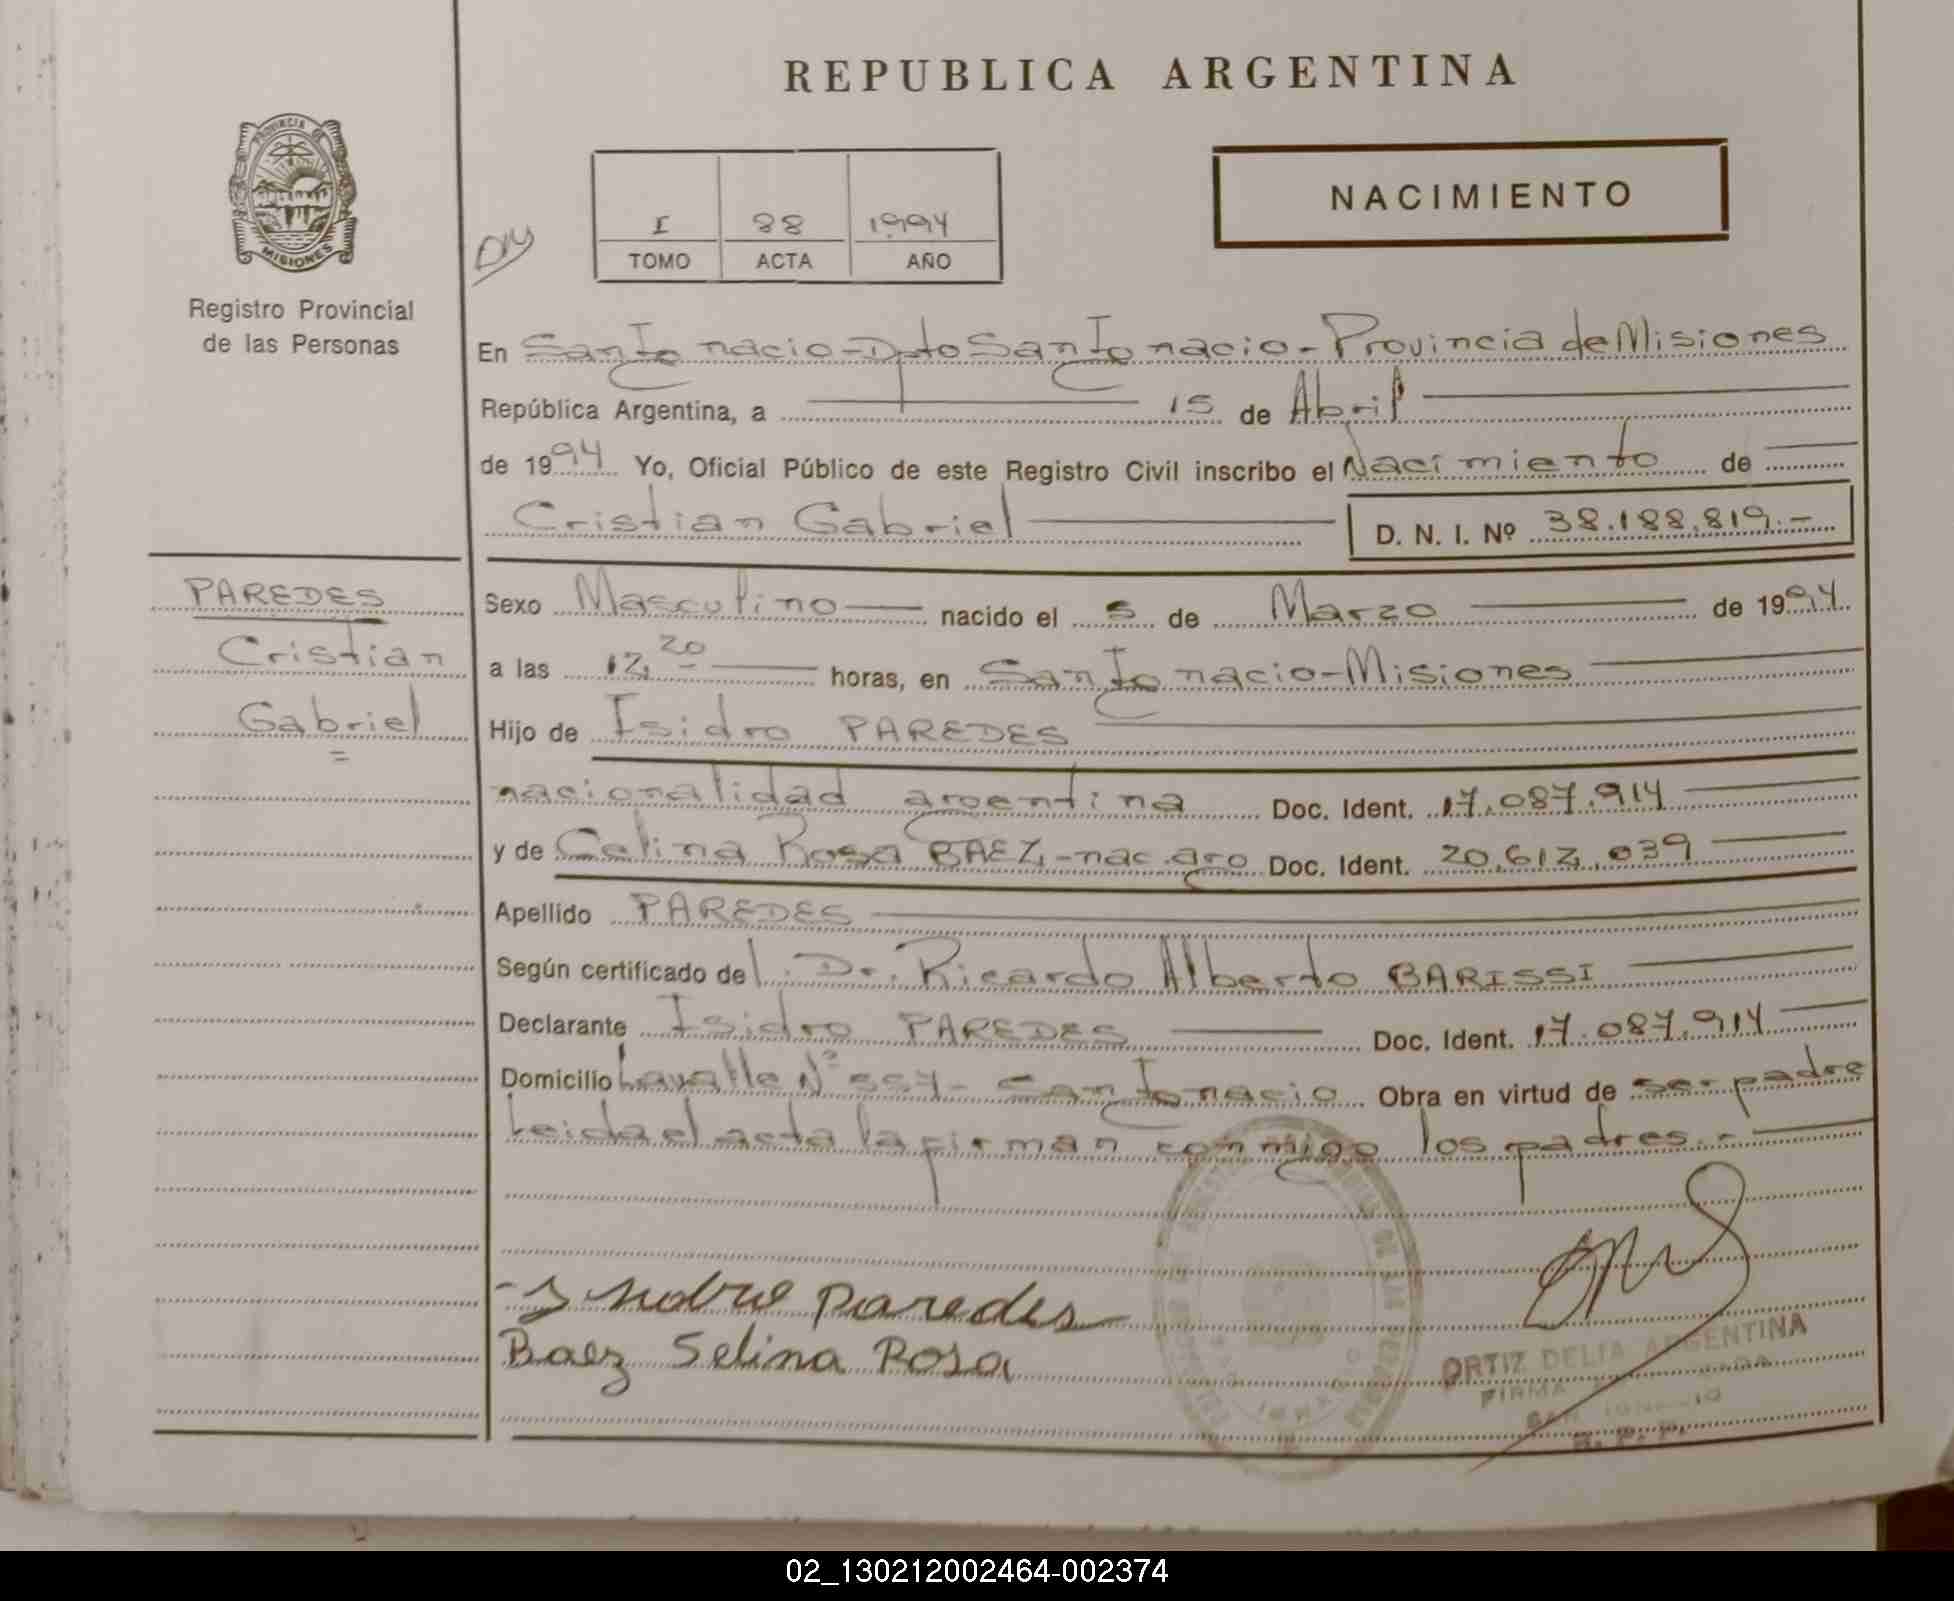 REPUBLICA ARGENTINA
PROVINCIA DE
MISIONES
NACIMIENTO
I 88 1994
TOMO ACTA AÑO
Registro Provincial
de las Personas
En San Ignacio - Dpto San Ignacio - Provincia de Misiones
República Argentina, a 15 de Abril
de 1994 Yo, Oficial Público de este Registro Civil inscribo el Nacimiento de
Cristian Gabriel D. N. I. Nº 38.188.819.-
PAREDES
Cristian
Gabriel
Sexo Masculino nacido el 5 de Marzo de 1994
a las 12,20 horas, en San Ignacio - Misiones
Hijo de Isidro PAREDES
nacionalidad argentina Doc. Ident. 17.087.914
y de Celina Rosa BAEZ, - nac. arg Doc. Ident. 20.612.039
Apellido PAREDES
Según certificado del Dr. Ricardo Alberto BARISSI
Declarante Isidro PAREDES Doc. Ident. 17.087.914
Domicilio Lavalle Nº 557 - San Ignacio Obra en virtud de ser padre
Leida el acta la firman conmigo los padres. -
paredes
Baez Selina Rosa
ORTIZ DELIA ARGENTINA
FIRMA
SAN IGNACIO
R. P. P.
02_130212002464-002374